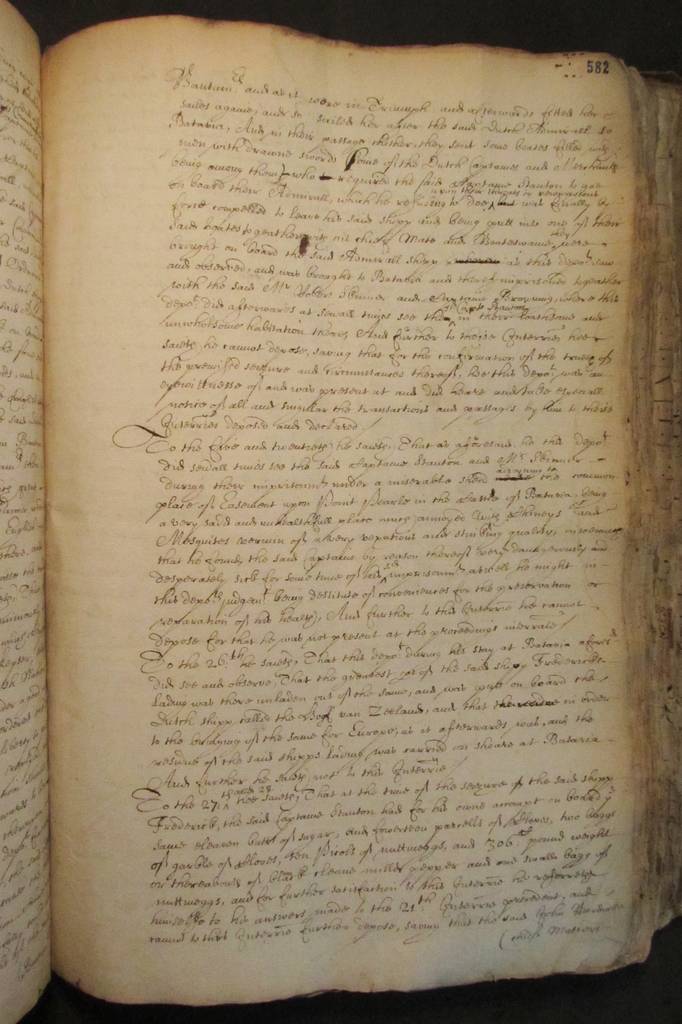 582
Bantam and as it were in Triumph and afterwards fitted her
sailes againe, and so sailed her after the said Dutch Admirall to
Batavia, And in their passage thither, they sent some boates filled with
men with drawne swords some of the Dutch Captaines and Merchants
being among them who required the said Captaine Stanton to goe
upon their threats
on board their Admirall, which he refusing to doe, but was finally by
force compelled to leave his said shipp and being putt into one of their
said boates together with his chiefe Mate and Boatswaine, were
brought on board the said Admirall shipp as this depot saw
and observed, and was brought to Batavia and there imprisoned together
with the said Mr Skinner and Captaine Browning, where this
Capt Stanton
depot did afterwards at severall times see them in their loathsome and
unwholsome habitation there, And further to these Interries hee
saith he cannot depose, saving that for the confirmation of the truth of
the premissed seizure and circumstances thereof, hee this depot was an
eyewittnesse of and was present at and did heare and take especiall
notice of all and singular the transactions and passages by him to these
Interries deposed and declared
To the five and twentieth he saieth, That as aforesaid, he this depot
did severall times see the said Captaine Stanton and Mr Skinner
during their imprisonmt under a miserable shed adjoyning to the common
place of Easement upon Point Pearle in the Castle of Batavia, being
a very sadd and unhealthfull place and annoyed with and
Mosquitos vermin of a very vexatious and stinging quality, insomuch
that he found the said Captaine by reason thereof very dangerously and
desperately sick for some time of his sd imprisonmt, as well he might in
this depots judgemt being destitute of conveniences for the preservation or
reparation of his health, And further to this Interrie he cannot
depose for that he was not present at the proceedings interrate
To the 26th he saieth, That this depot during his stay at Batavia aforesd
did see and observe, That the greatest pt of the said shipp Fredericks
lading was there unladen out of the same, and was put on board the
Dutch shipp called the van Zeeland, and that in order
to the bringing of the same for Europe, as it afterwards was, and the
residue of the said shipps lading was carried on shoare at Batavia
And further he saieth not to this Interrie
To the 27th and 28 hee saieth, That at the time of the seizure of the said shipp
Frederick, the said Captaine Stanton had for his owne account on board ye
same eleaven butts of sugar, and fowerteen parcells of cloves, two baggs
of garble of cloves, ten Picols of nuttmeggs, and 306 pound weight
or thereabouts of black cleane milled pepper and one small bagg of
nuttmeggs, and for further satisfaction to this Interrie he referreth
himselfe to his answers made to the 21th Interrie precedent, and
cannot to this Interrie further depose, saving that the said John